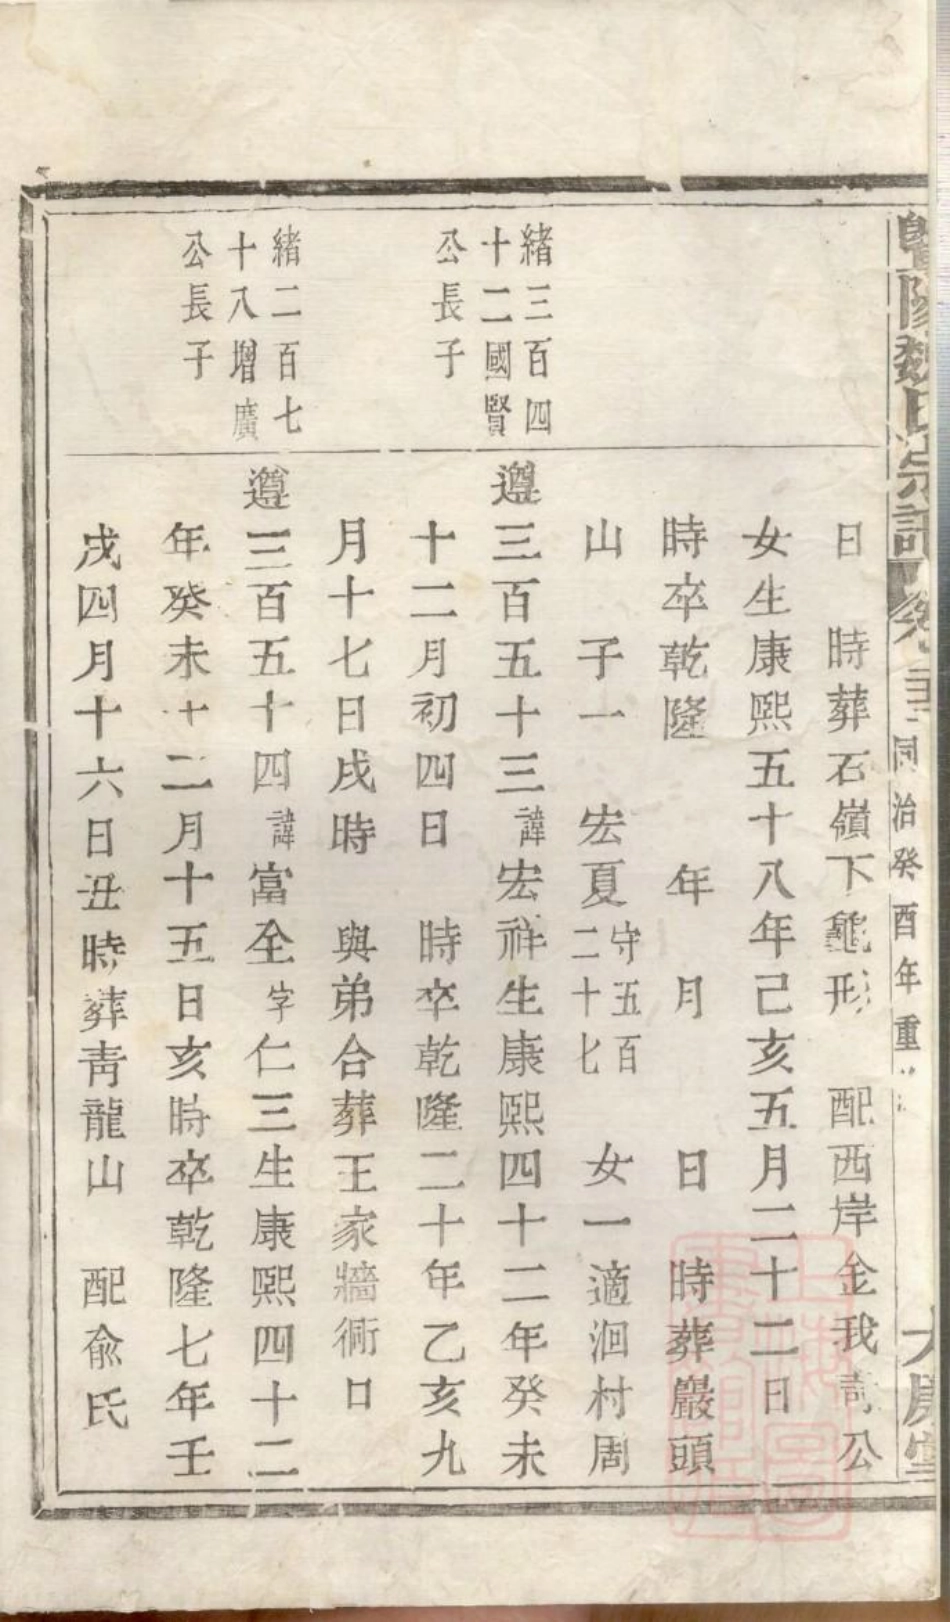 暨陽魏氏宗譜 卷 同治癸酉年重
日 時葬石嶺下龜形 配西岸金我 公
女生康熙五十八年己亥五月二十二日
時卒乾隆 年 月 日 時葬巖頭
山 子一 宏夏守五百二十七 女一適洄村周
緒三百四十二國賢公長子
遵三百五十三諱宏祥生康熙四十二年癸未
十二月初四日 時卒乾隆二十年乙亥九
月十七日戌時 與弟合葬王家牆衕口
緒二百七十八增廣公長子
遵三百五十四諱富全字仁三生康熙四十二
年癸未十二月十五日亥時卒乾隆七年壬
戌四月十六日丑時葬青龍山 配俞氏